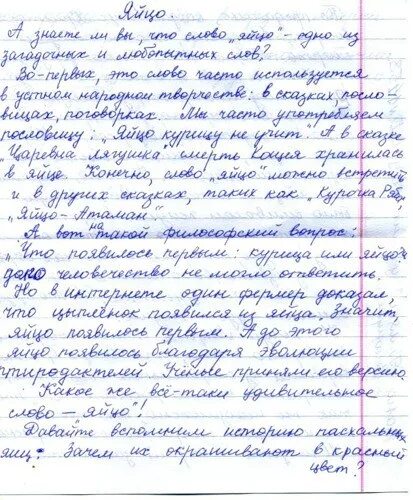 Яйцо.
А знаете ли вы, что слово „яйцо" – одно из
загадочных и любопытных слов?
Во-первых, это слово часто используется
в устном народном творчестве: в сказках, посло-
вицах, поговорках. Мы часто употребляем
пословицу: „Яйцо курицу не учит". А в сказке
„Царевна лягушка" смерть Кощея хранилась
в яйце. Конечно, слово „яйцо" можно встретить
и в других сказках, таких как „Курочка Ряба",
„Яйцо – Атаман".
А вот на такой философский вопрос:
„Что появилось первым: курица или яйцо?"
долго человечество не могло ответить.
Но в интернете один фермер доказал,
что цыплёнок появился из яйца. Значит,
яйцо появилось первым. А до этого
яйцо появилось благодаря эволюции
Учёные приняли его версию.
Какое же всё-таки удивительное
слово – „яйцо"!
Давайте вспомним историю пасхальных
яиц. Зачем их окрашивают в красный
цвет?